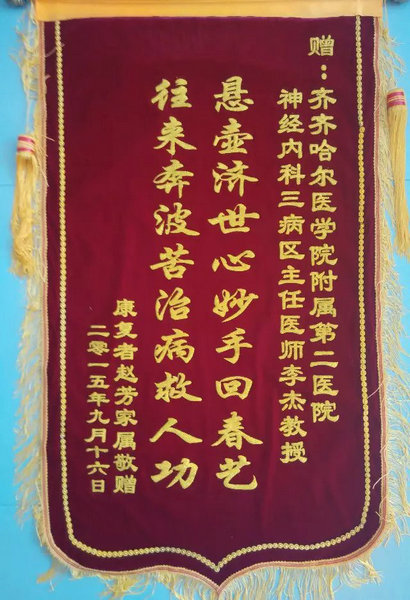 赠：齐齐哈尔医学院附属第二医院
神经内科三病区主任医师李杰教授
悬壶济世心妙手回春艺
往来奔波苦治病救人功
康复者赵芳家属敬赠
二零一五年九月十六日